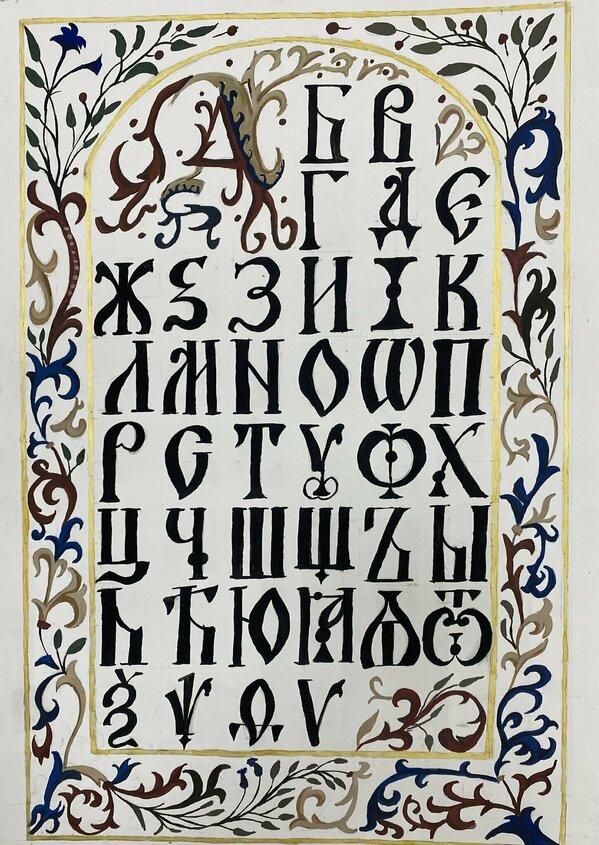 А Б В
Г Д Є
Ж Ѕ З И І К
Л М Н О Ѡ П
Р С Т У Ф Х
Ц Ч Ш Щ Ъ Ы
Ь Ѣ Ю Ꙗ Ѧ Ѿ
Ѯ Ѱ Ѳ Ѵ